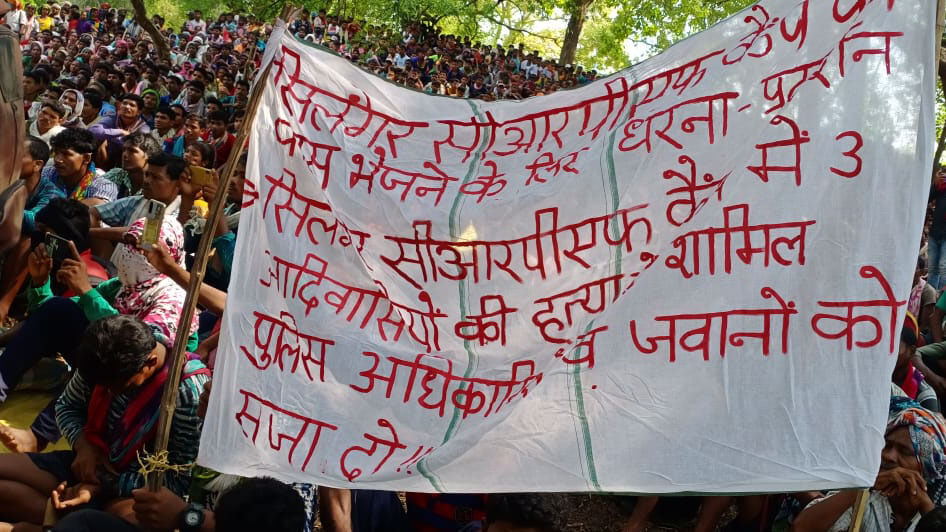 सिलंगेर सीआरपीएफ कैंप को
वापस भेजने के लिए धरना-प्रदर्शन
सिलंगेर सीआरपीएफ कैंप में 3
आदिवासियों की हत्या में शामिल
पुलिस अधिकारी व जवानों को
सजा दो!!